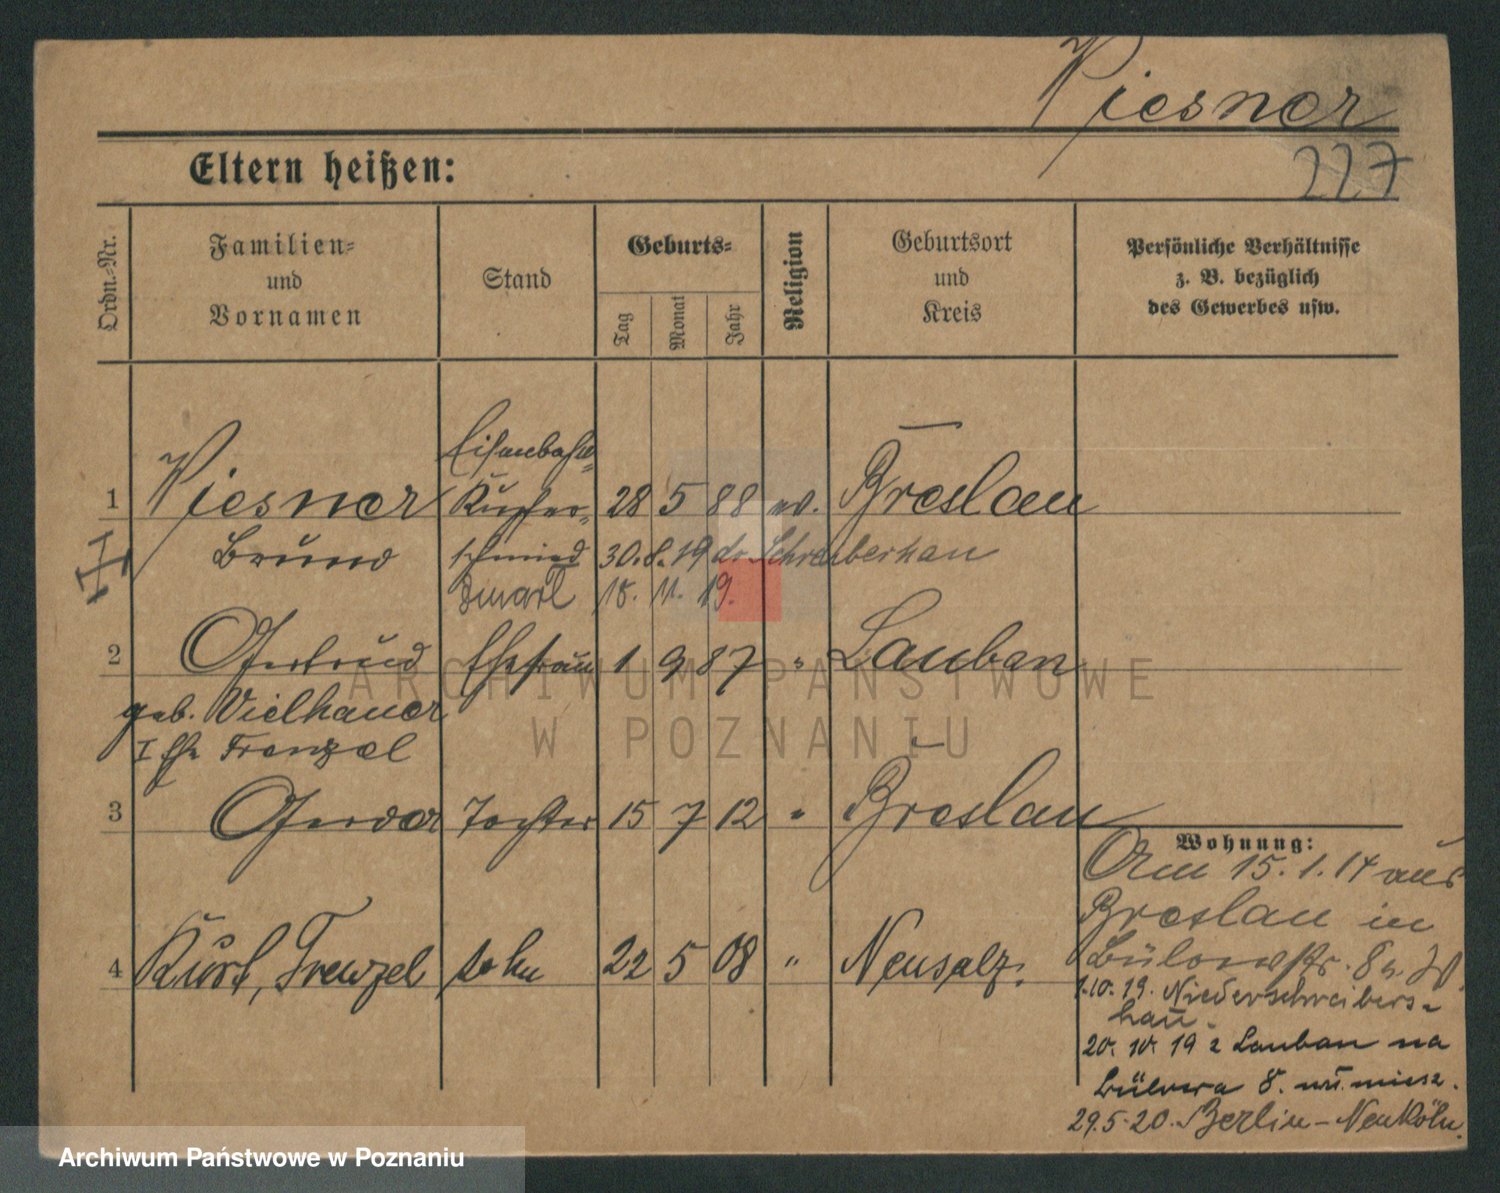 Piesner
227
Eltern heißen:
Ordn.-Nr.
Familien-
und
Vornamen
Stand
Geburts-
Tag
Monat
Jahr
Religion
Geburtsort
und
Kreis
Persönliche Verhältnisse
z. B. bezüglich
des Gewerbes usw.
1 Piesner Eisenbahn- Kupfer- 28 5 88 ev. Breslau
Bruno schmied 30.8.19 do Schreiberhau
zmarł 18. 11. 19.
2 Gertrud Ehefrau 1 9 87 " Lauban
geb. Vielhauer
I Ehe Frenzel
3 Gerda Tochter 15 7 12 " Breslau
4 Kurt, Frenzel Sohn 22 5 08 " Neusalz.
Wohnung:
Am 15.1.14 aus
Breslau in
Bülowstr. 8
1.10.19. Niederschreibers-
hau.
20. 10. 19 z Lauban na
Bülowa 8. miesz.
29.5.20. Berlin-Neukölln.
ARCHIWUM PAŃSTWOWE
W POZNANIU
Archiwum Państwowe w Poznaniu